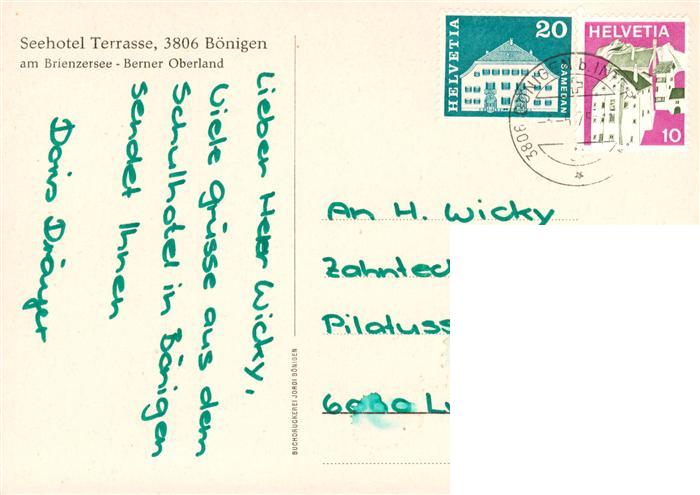 Seehotel Terrasse, 3806 Bönigen
am Brienzersee - Berner Oberland
Lieber Herr Wicky,
Viele Grüsse aus dem
Schulhotel in Bönigen
sendet Ihnen
Doris
BUCHDRUCKEREI JORDI BÖNIGEN
HELVETIA
20
SAMEDAN
HELVETIA
10
3806 BÖNIGEN b. INT
An H. Wicky
Zahntec
Pilatuss
6000 Lu